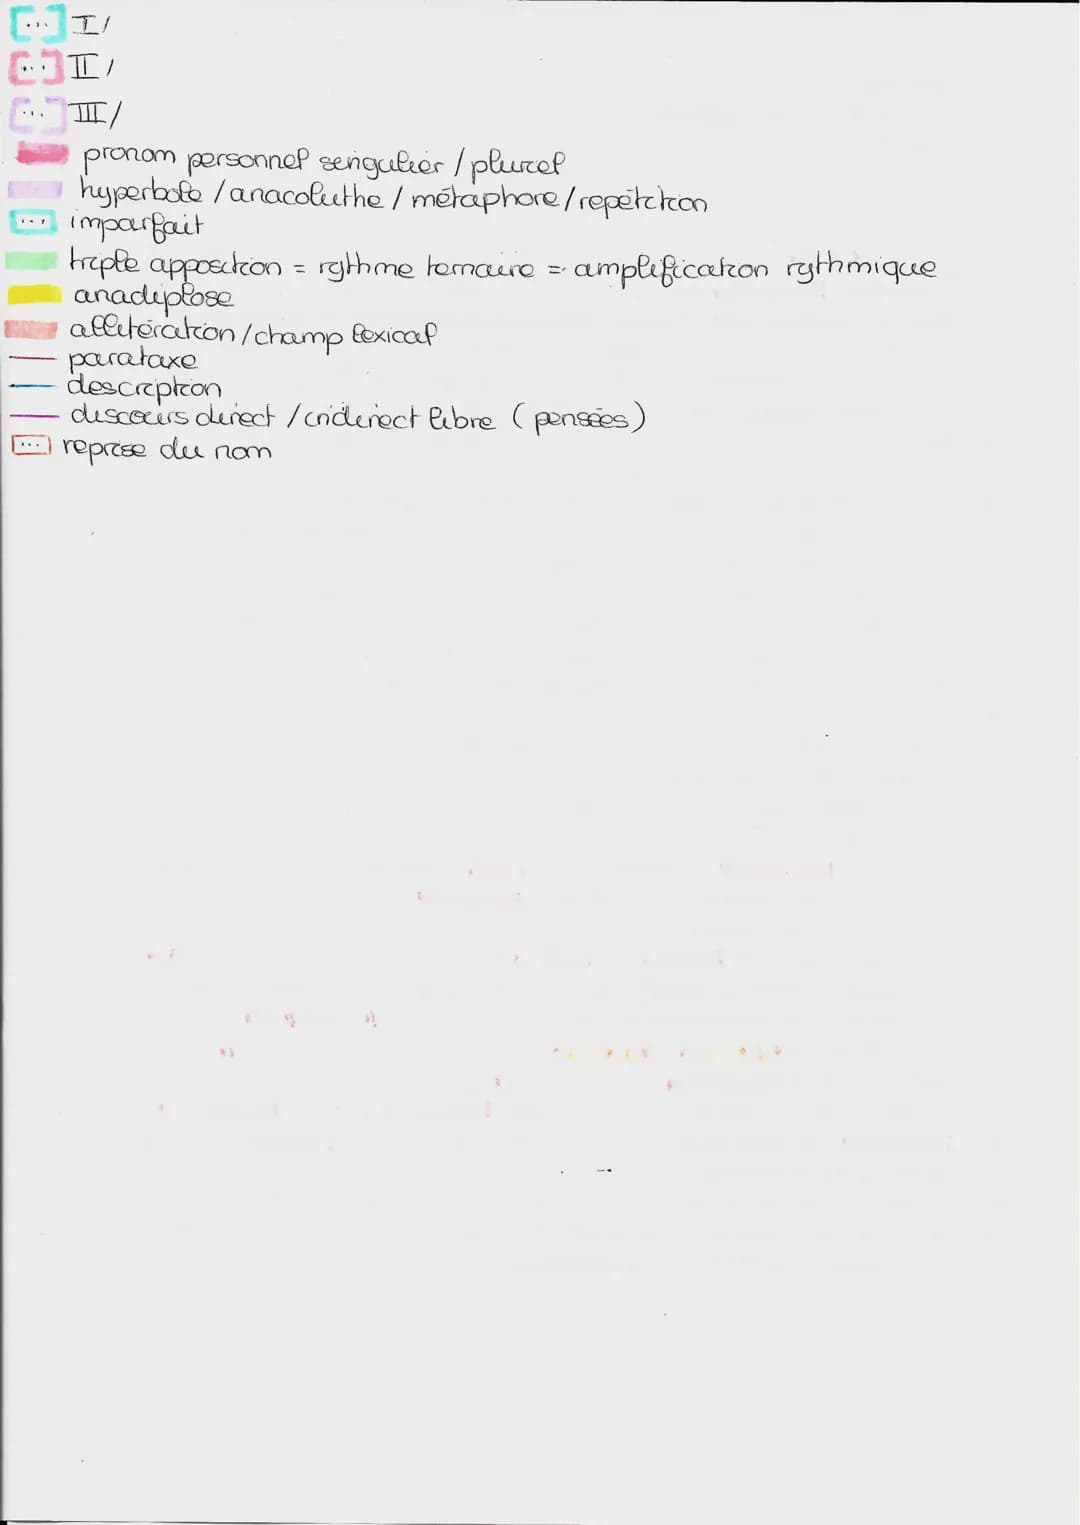 [...] I/
[...] II/
[...] III/
pronom personnel singulier / pluriel
hyperbole / anacoluthe / métaphore / repétition
... imparfait
triple apposition = rythme ternaire = amplification rythmique
anadiplose
allitération / champ lexical
parataxe
description
discours direct / indirect libre (pensées)
[...] reprise du nom